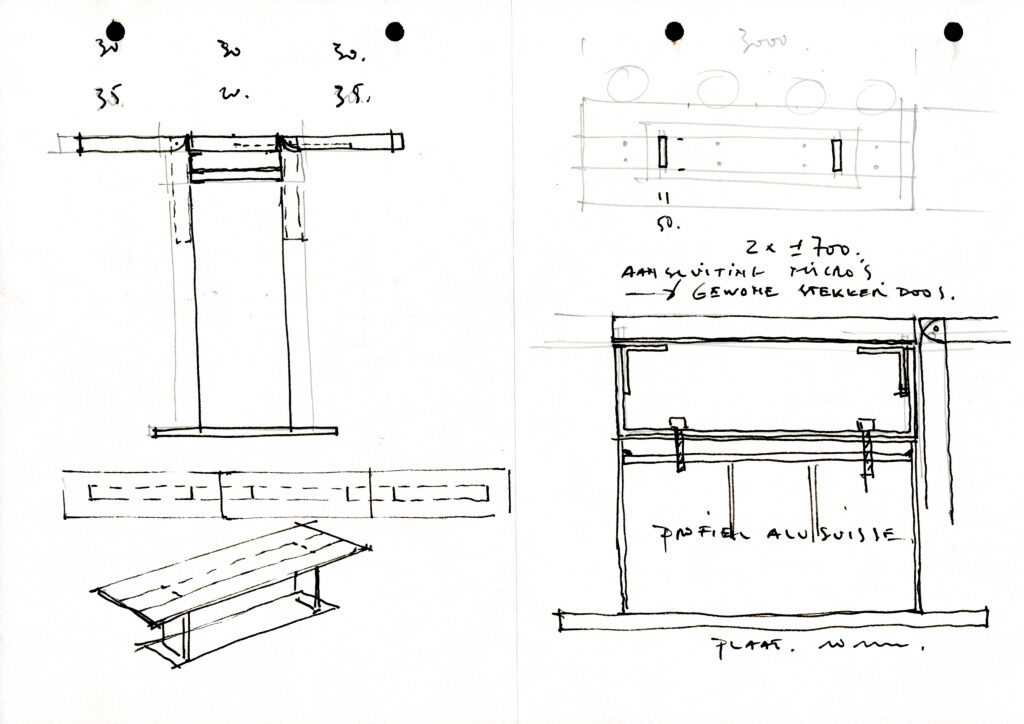 30 30 30.
35. 20. 35.
3000
50.
2 x ± 700.
AANSLUITING MICRO'S
→ GEWONE STEKKER DOOS.
PROFIEL ALUSUISSE.
PLAAT. 10 mm.